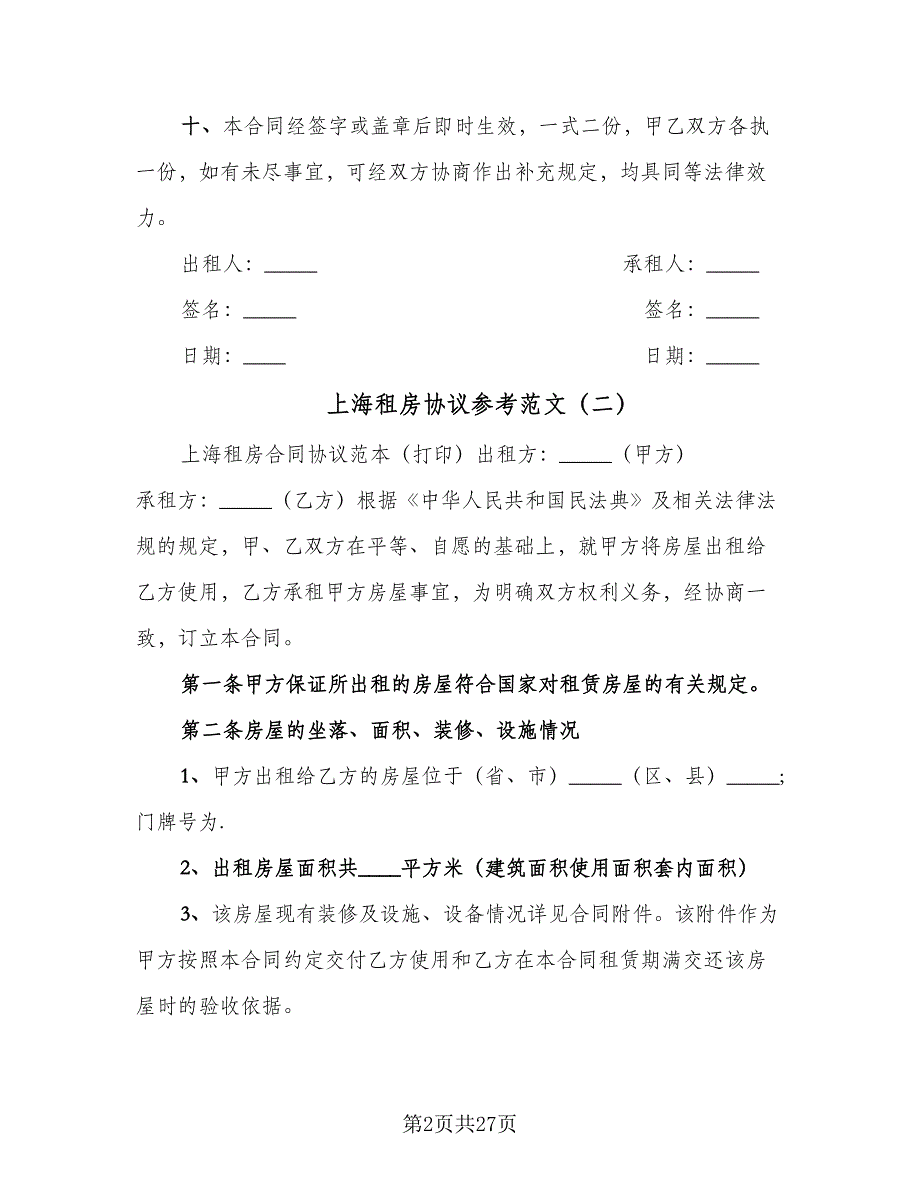 十、本合同经签字或盖章后即时生效，一式二份，甲乙双方各执
一份，如有未尽事宜，可经双方协商作出补充规定，均具同等法律效
力。
出租人：_____ 承租人：_____
签名：_____ 签名：_____
日期：____ 日期：_____
上海租房协议参考范文（二）
上海租房合同协议范本（打印）出租方：_____（甲方）
承租方：_____（乙方）根据《中华人民共和国民法典》及相关法律法
规的规定，甲、乙双方在平等、自愿的基础上，就甲方将房屋出租给
乙方使用，乙方承租甲方房屋事宜，为明确双方权利义务，经协商一
致，订立本合同。
第一条甲方保证所出租的房屋符合国家对租赁房屋的有关规定。
第二条房屋的坐落、面积、装修、设施情况
1、甲方出租给乙方的房屋位于（省、市）_____（区、县）_____;
门牌号为.
2、出租房屋面积共____平方米（建筑面积使用面积套内面积）
3、该房屋现有装修及设施、设备情况详见合同附件。该附件作为
甲方按照本合同约定交付乙方使用和乙方在本合同租赁期满交还该房
屋时的验收依据。
第2页共27页